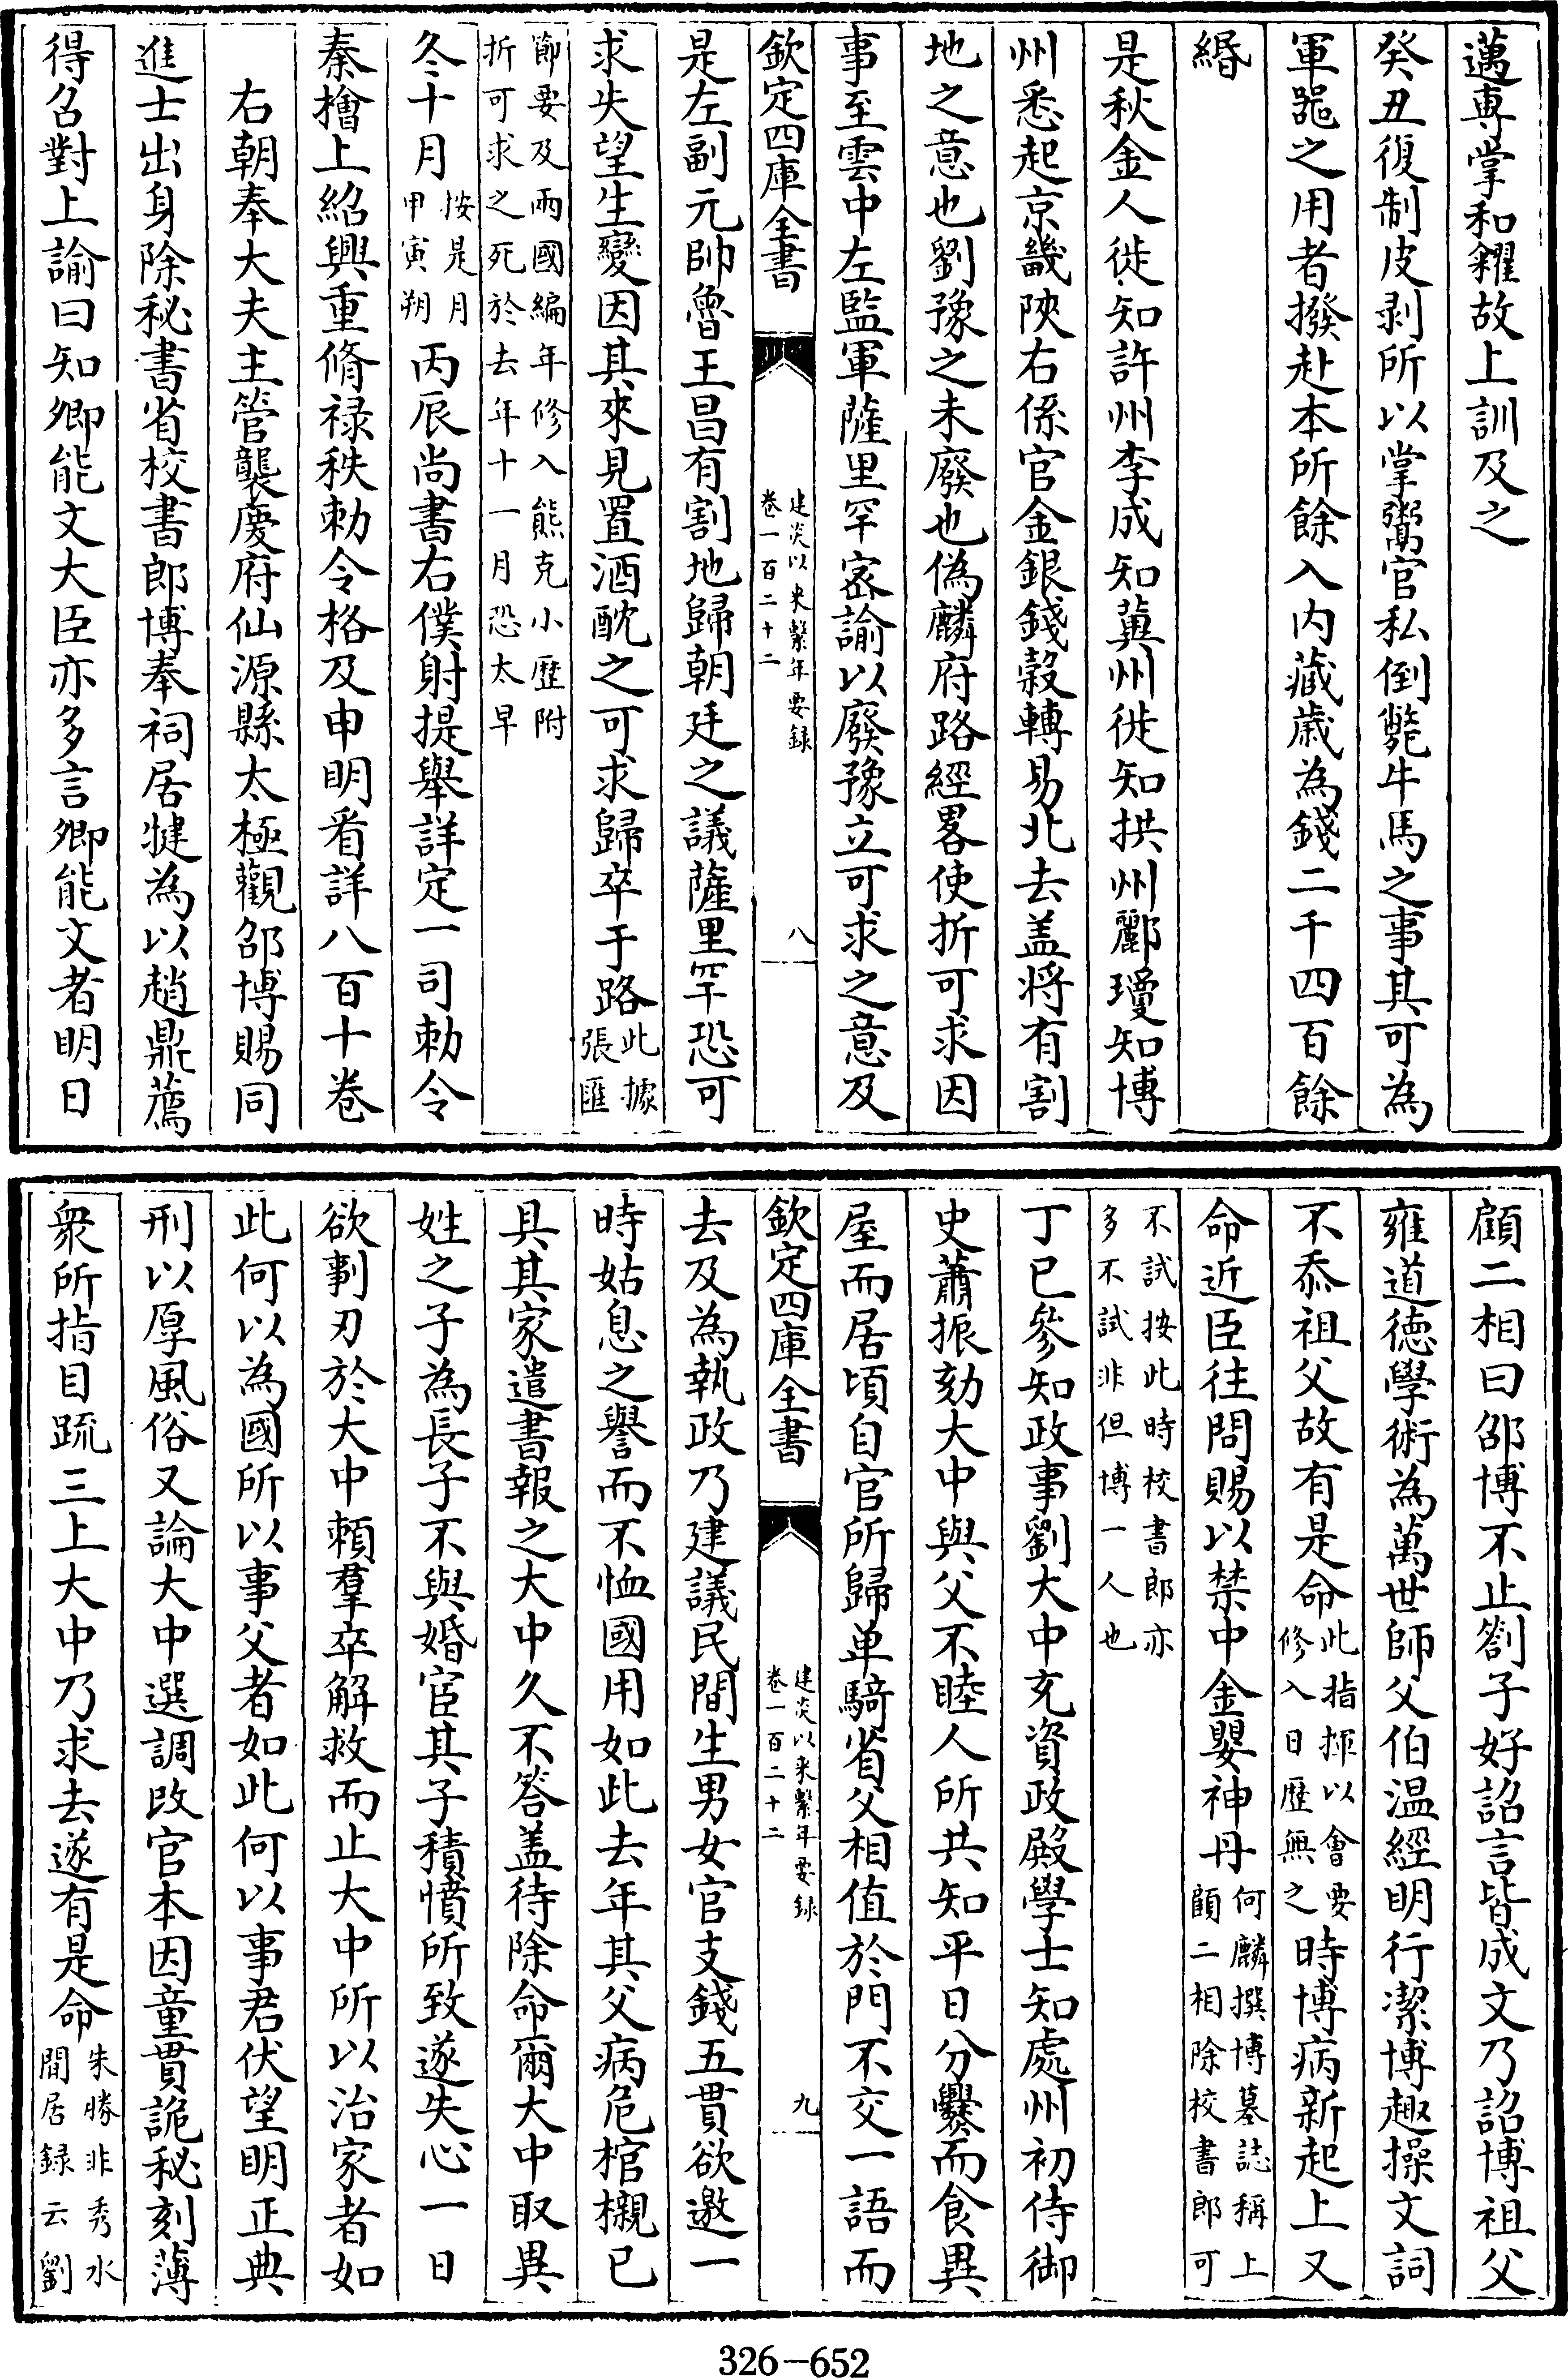 邁專掌和糴故上訓及之
癸丑復制皮剥所以掌鬻官私倒斃牛馬之事其可為
軍噐之用者撥赴本所餘入内藏歲為錢二千四百餘
緡
是秋金人徙知許州李成知冀州徙知拱州酈瓊知博
州悉起京畿陜右係官金銀錢糓轉易北去盖將有割
地之意也劉豫之未廢也偽麟府路經畧使折可求因
事至雲中左監軍薩里罕宻諭以廢豫立可求之意及
欽定四庫全書
建炎以來繫年要録
卷一百二十二
八
是左副元帥魯王昌有割地歸朝廷之議薩里罕恐可
求失望生變因其來見置酒酖之可求歸卒于路此據
張匯
節要及兩國編年修入熊克小歴附
折可求之死於去年十一月恐太早
冬十月按是月
甲寅朔丙辰尚書右僕射提舉詳定一司勅令
秦檜上紹興重脩禄秩勅令格及申明看詳八百十卷
右朝奉大夫主管襲慶府仙源縣太極觀邵博賜同
進士出身除秘書省校書郎博奉祠居犍為以趙鼎薦
得召對上諭曰知卿能文大臣亦多言卿能文者明日
顧二相曰邵博不止劄子好詔言皆成文乃詔博祖父
雍道徳學術為萬世師父伯温經明行潔博趣操文詞
不忝祖父故有是命此指揮以會要
修入日歴無之時博病新起上又
命近臣往問賜以禁中金嬰神丹何麟撰博墓誌稱上
顧二相除校書郎可
不試按此時校書郎亦
多不試非但博一人也
丁巳參知政事劉大中充資政殿學士知處州初侍御
史蕭振劾大中與父不睦人所共知平日分爨而食異
屋而居頃自官所歸单騎省父相值於門不交一語而
欽定四庫全書
建炎以來繫年要録
卷一百二十二
九
去及為執政乃建議民間生男女官支錢五貫欲邀一
時姑息之譽而不恤國用如此去年其父病危棺櫬已
具其家遣書報之大中久不答盖待除命爾大中取異
姓之子為長子不與婚宦其子積憤所致遂失心一日
欲剚刃於大中頼羣卒解救而止大中所以治家者如
此何以為國所以事父者如此何以事君伏望明正典
刑以厚風俗又論大中選調改官本因童貫詭秘刻薄
衆所指目疏三上大中乃求去遂有是命朱勝非秀水
閒居録云劉
326-652